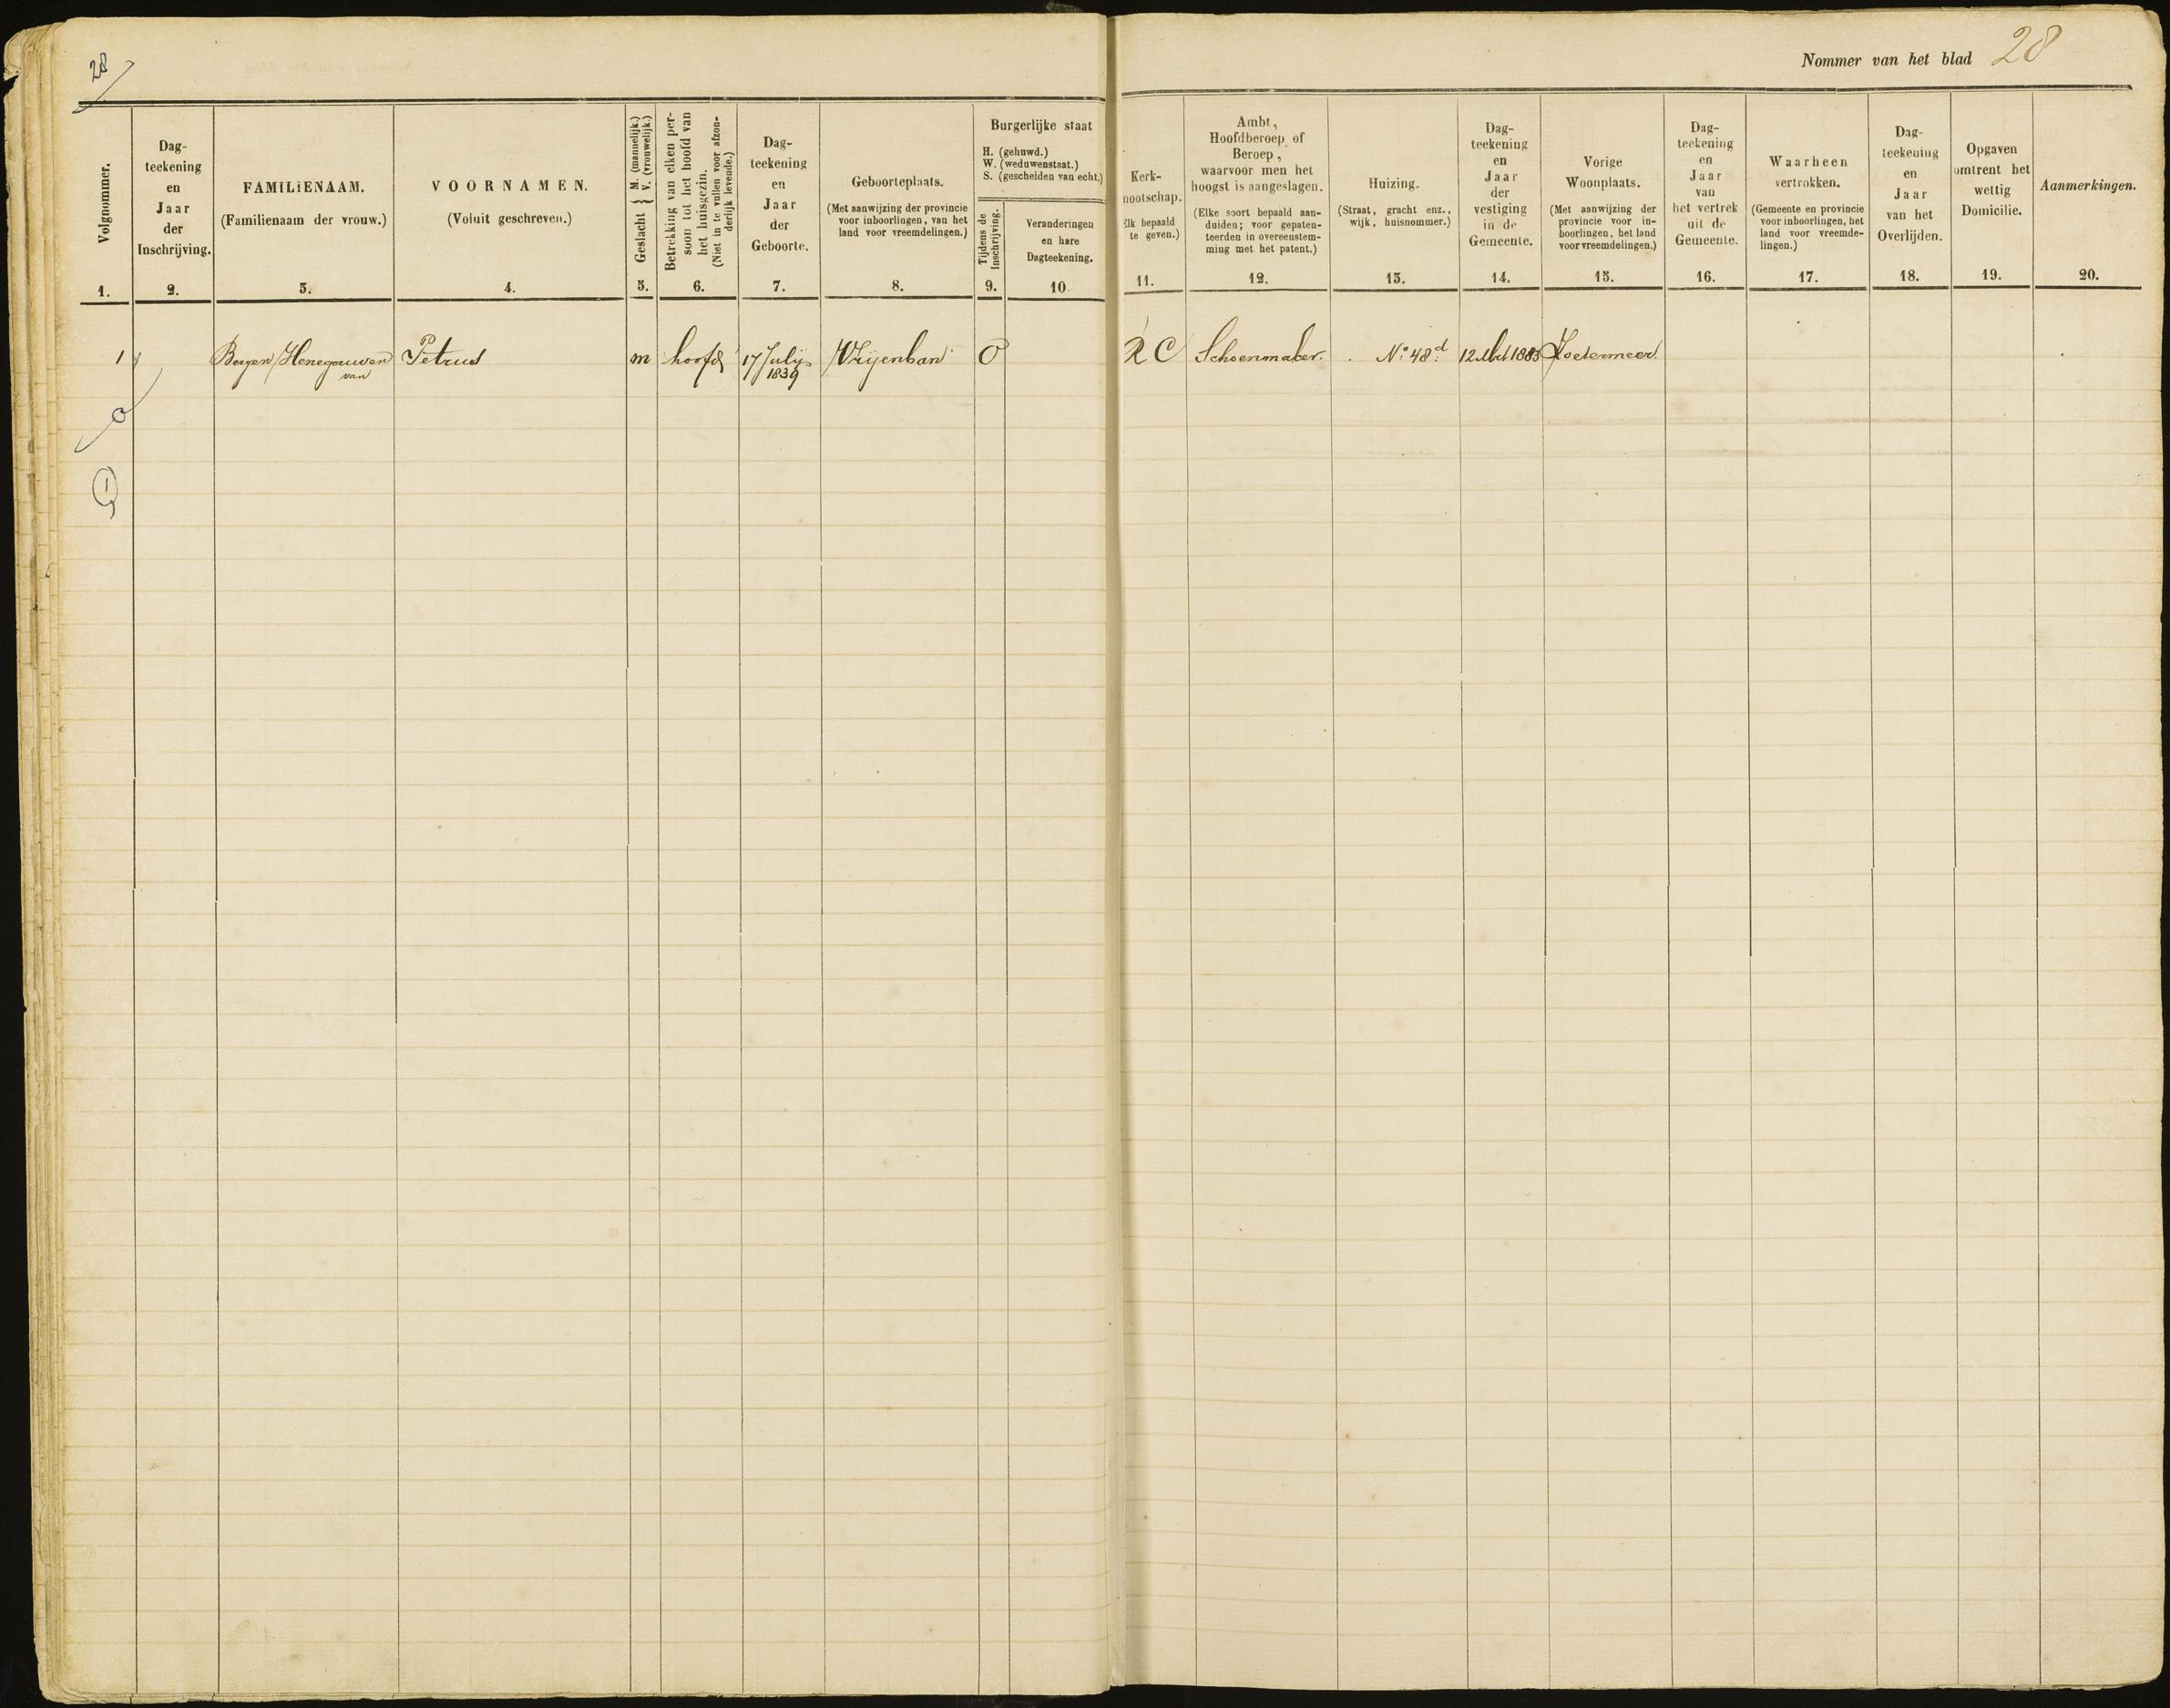 28
Nommer van het blad 28
Volgnommer.
1.
Dag-
teekening
en
Jaar
der
Inschrijving.
2.
FAMILIENAAM.
(Familienaam der vrouw.)
3.
VOORNAMEN.
(Voluit geschreven.)
4.
Geslacht { M. (mannelijk.)
V. (vrouwelijk.)
5.
Betrekking van elken per-
soon tot het hoofd van
het huisgezin.
(Niet in te vullen voor afzon-
derlijk levende.)
6.
Dag-
teekening
en
Jaar
der
Geboorte.
7.
Geboorteplaats.
(Met aanwijzing der provincie
voor inboorlingen, van het
land voor vreemdelingen.)
8.
Burgerlijke staat
H. (gehuwd.)
W. (weduwenstaat.)
S. (gescheiden van echt.)
Tijdens de
Inschrijving.
9.
Veranderingen
en hare
Dagteekening.
10
Kerk-
nootschap.
Elk bepaald
te geven.)
11.
Ambt,
Hoofdberoep of
Beroep,
waarvoor men het
hoogst is aangeslagen.
(Elke soort bepaald aan-
duiden; voor gepaten-
teerden in overeenstem-
ming met het patent.)
12.
Huizing.
(Straat, gracht enz.,
wijk, huisnommer.)
13.
Dag-
teekening
en
Jaar
der
vestiging
in de
Gemeente.
14.
Vorige
Woonplaats.
(Met aanwijzing der
provincie voor in-
boorlingen, het land
voor vreemdelingen.)
15.
Dag-
teekening
en
Jaar
van
het vertrek
uit de
Gemeente.
16.
Waarheen
vertrokken.
(Gemeente en provincie
voor inboorlingen, het
land voor vreemde-
lingen.)
17.
Dag-
teekening
en
Jaar
van het
Overlijden.
18.
Opgaven
omtrent het
wettig
Domicilie.
19.
Aanmerkingen.
20.
1 Bergen/Henegouwen Petrus m hoofd 17 July Vrijenban O R C Schoenmaker. No 48d 12 1883 Zoetermeer.
van 1839
1